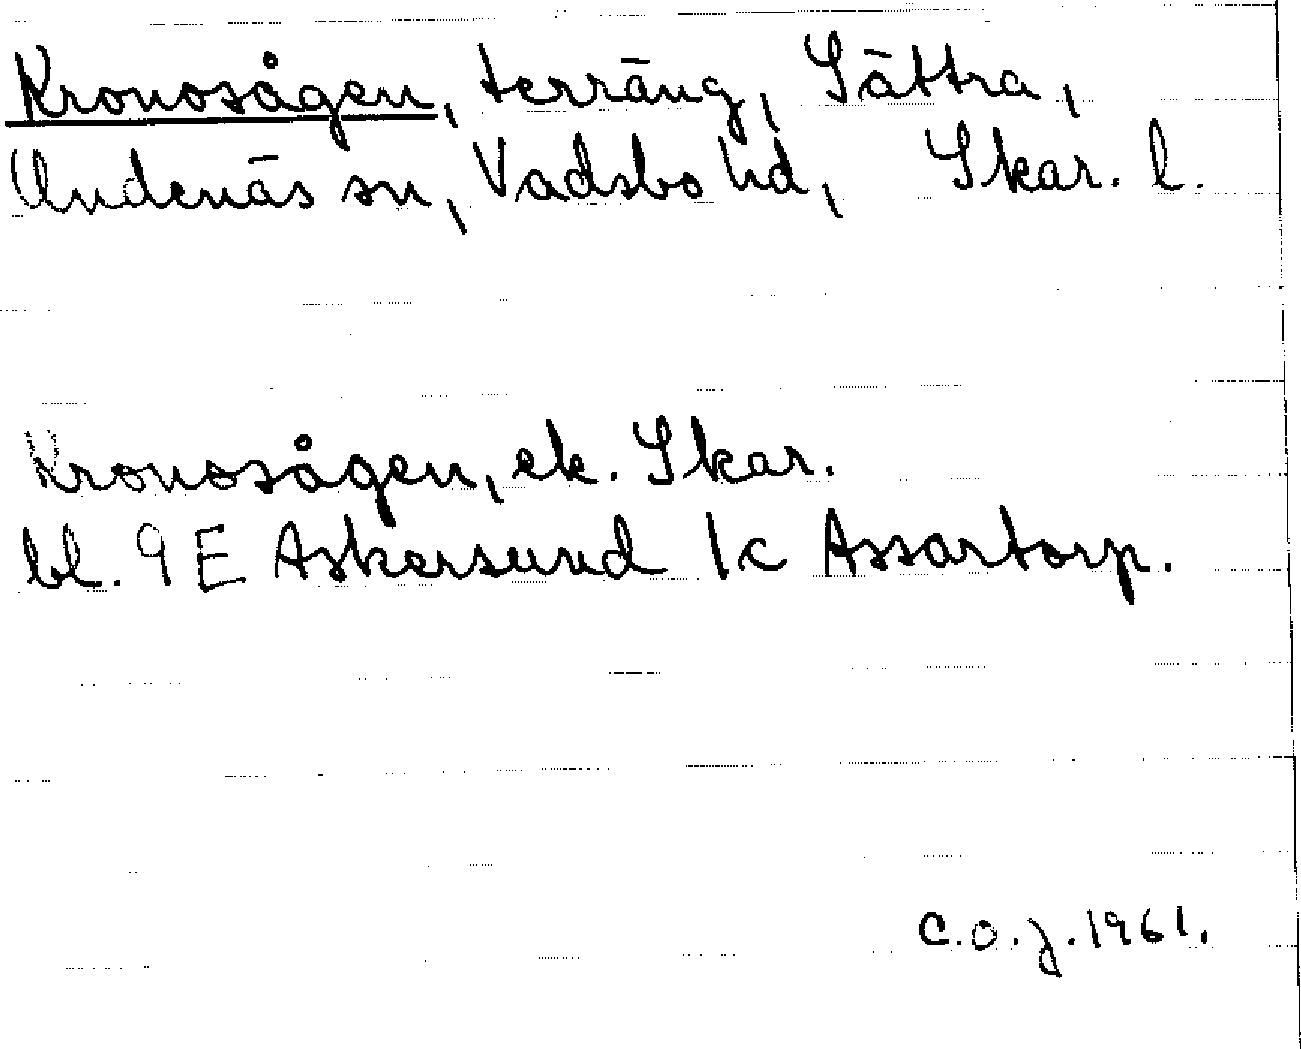 Kronosågen, terräng, Sättra,
Undenäs sn, Vadsbo hd, Skar. l.
Kronosågen, ek. Skar.
bl. 9 E Askersund 1c Assartorp.
C.O.J. 1961.